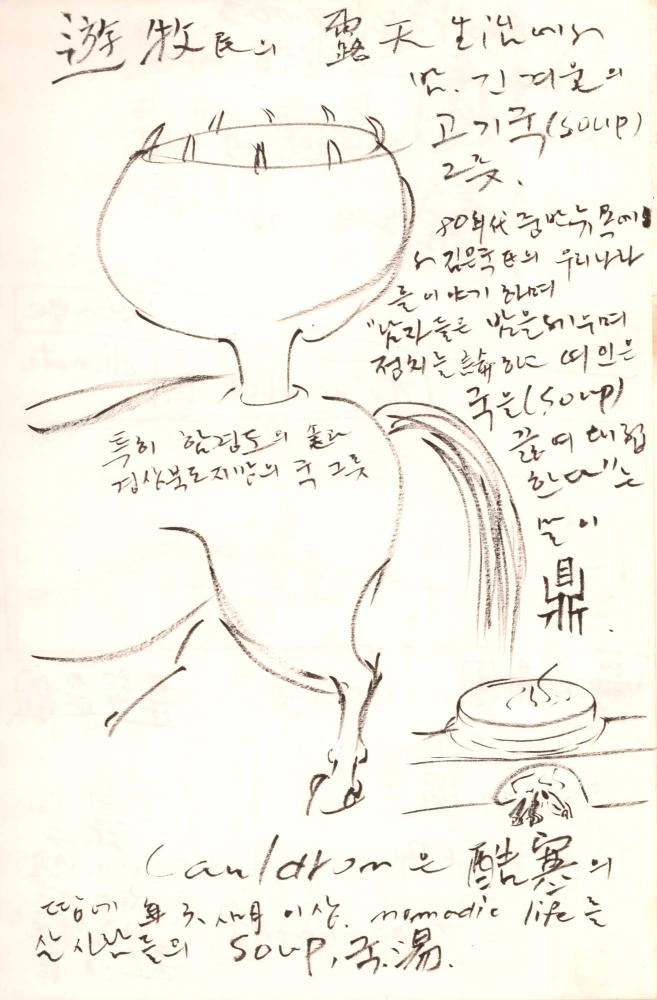 遊牧民의 露天 生活에서
밤. 긴 겨울의
고기국(soup)
그릇.
80年代 중반 뉴욕에
서 김은국 氏의 우리나라
들 이야기 하며
"남자들은 밤을 세우며
정치를 論하고 여인은
국을(soup)
끓여 대접
한다"는
말이
鼎.
특히 함경도의 솥과
경상북도 지방의 국 그릇
Cauldron은 酷寒의
땅에 이상. nomadic life를
산 사람들의 soup, 국. 湯.